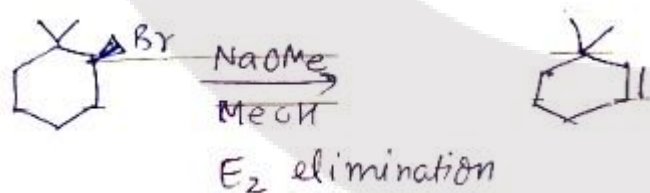 Br
NaOMe
MeOH
E₂ elimination